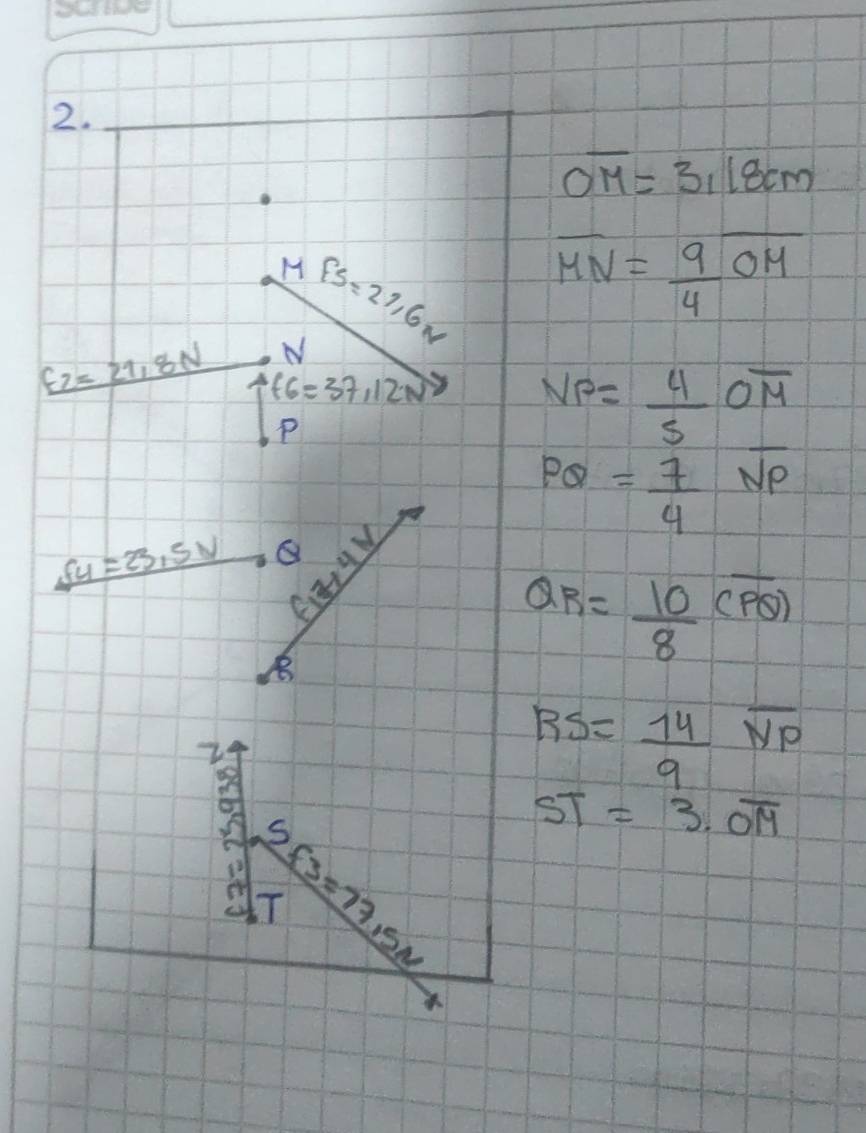 Scribe
2.
M F5=27,6N
N
F2= 21,8N
F6=37,12N
P
F4=23,5N
Q
R
N
S
T
F3=77,5N
OM = 3,18cm
MN = 9/4 OM
NP= 4/5 OM
PQ = 7/4 NP
QR= 10/8 (PQ)
RS= 14/9 NP
ST = 3. OM